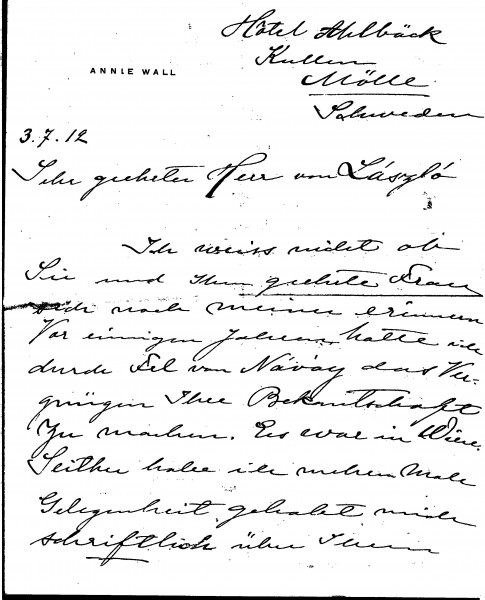 Hôtel Ahlbäck
Kullen
Mölle
Schweden
ANNIE WALL
3.7.12
Sehr geehrter Herr von László
Ich weiss nicht ob
Sie und Ihre geehrte Frau
sich noch meiner erinnern
Vor einigen Jahren hatte ich
durch Frl von Návay das Ver-
gnügen Ihre Bekantschaft
zu machen. Es war in Wien.
Seither habe ich mehrere Male
Gelegenheit gehabt mich
schriftlich über Ihren